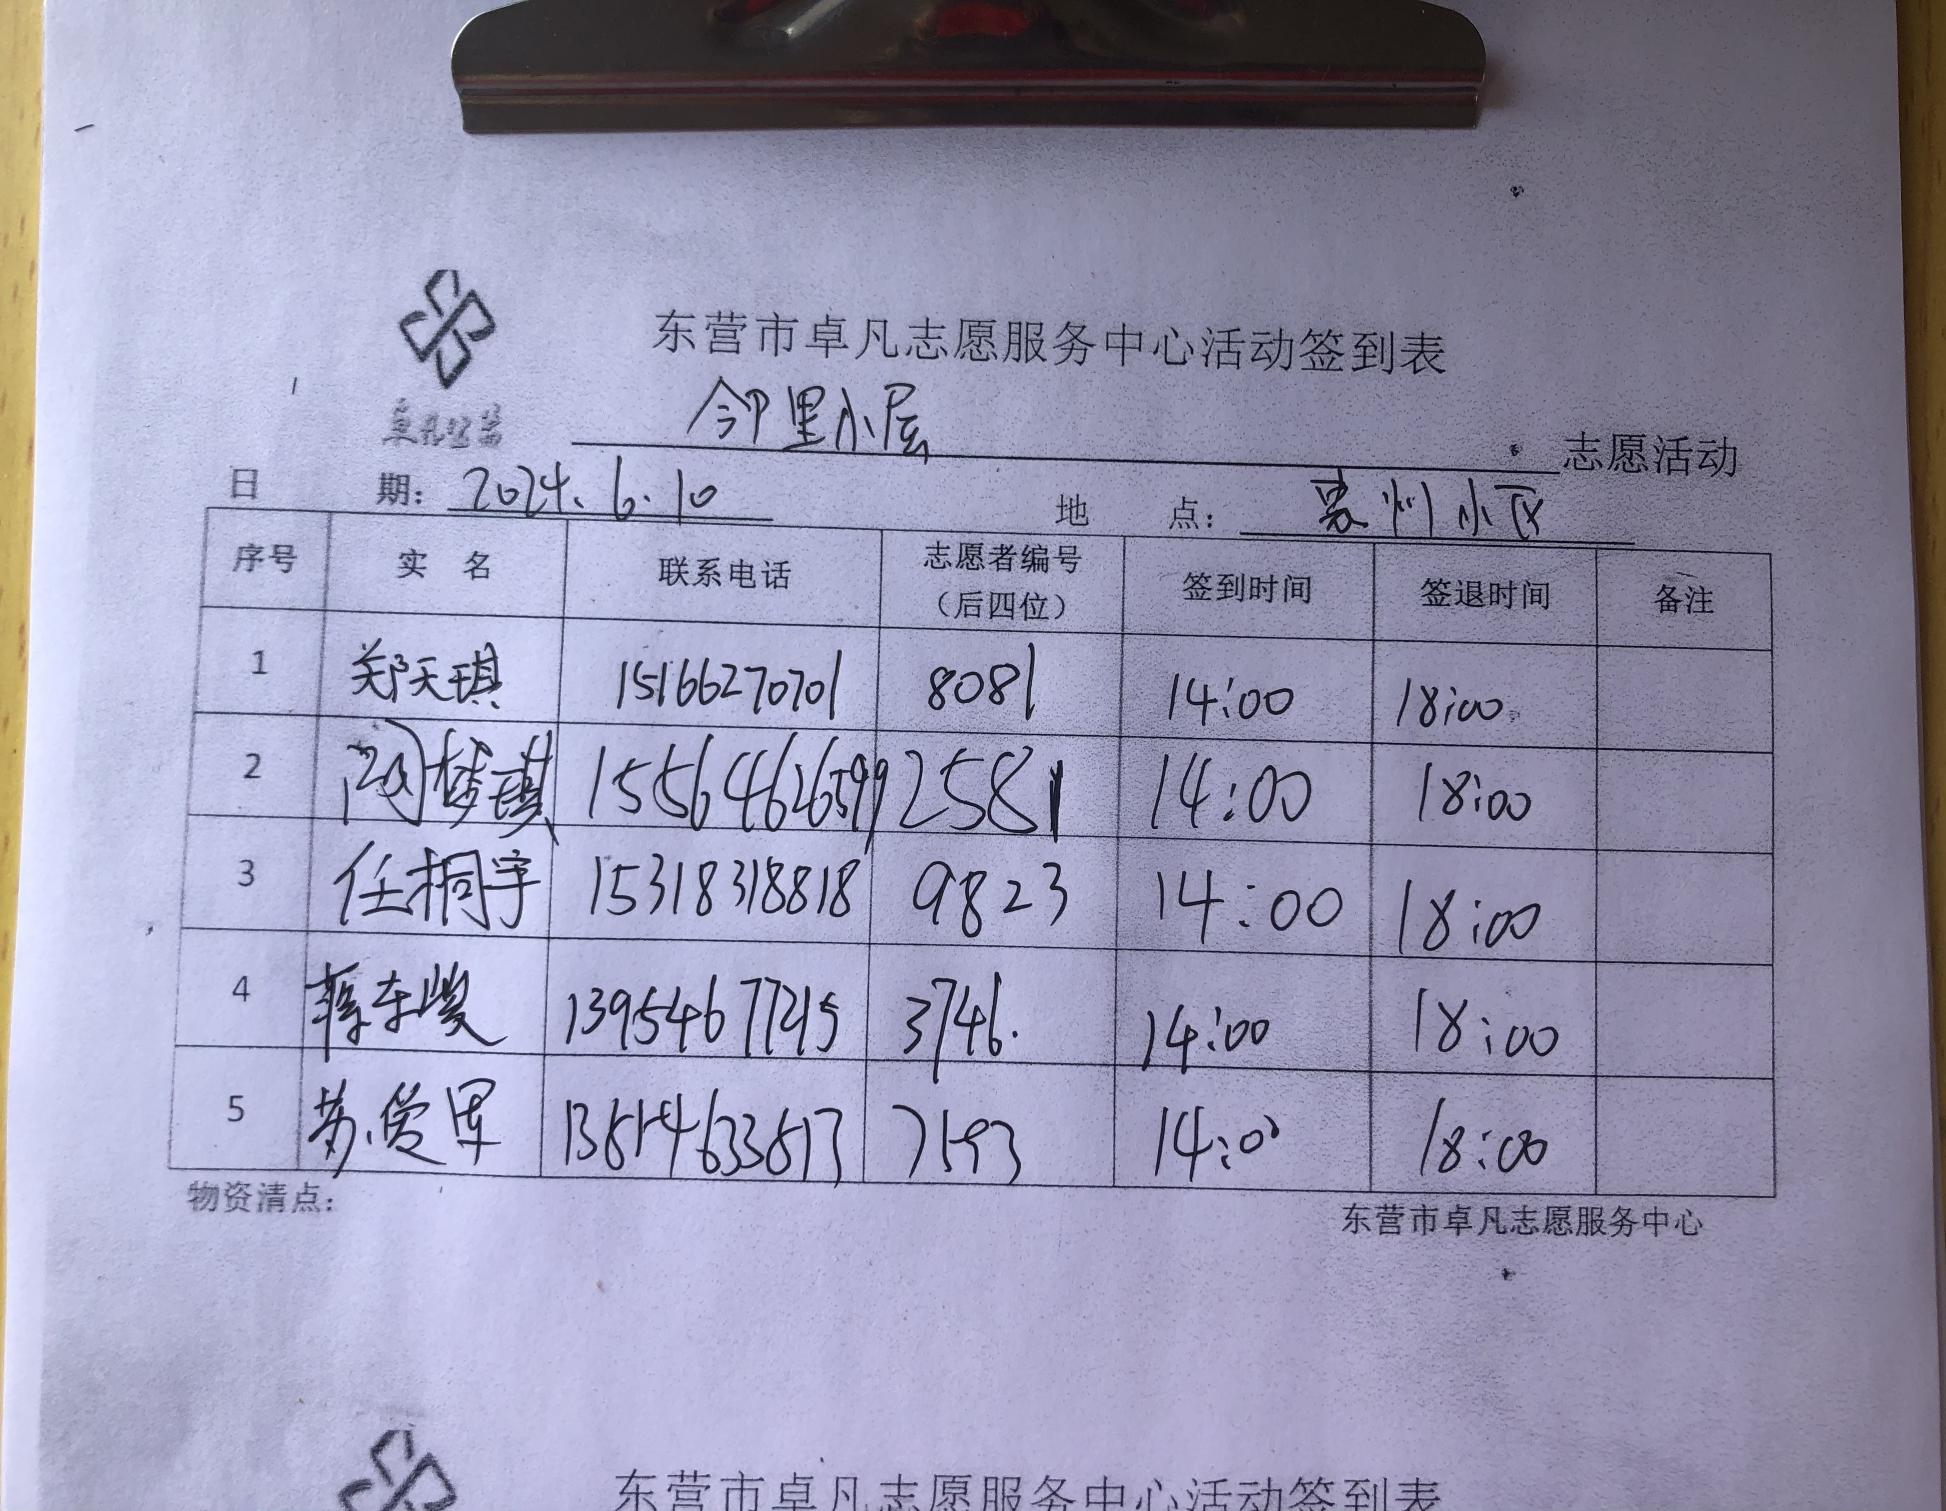 东营市卓凡志愿服务中心活动签到表
邻里小屋 志愿活动
日 期: 2024.6.10 地 点: 州小区
序号 实 名 联系电话 志愿者编号（后四位） 签到时间 签退时间 备注
1 郑天琪 15166270701 8081 14:00 18:00
2 闵梦琪 15564626599 2581 14:00 18:00
3 任桐宇 15318318818 9823 14:00 18:00
4 3746. 14:00 18:00
5 苏爱军 14:00 18:00
物资清点: 东营市卓凡志愿服务中心
东营市卓凡志愿服务中心活动签到表